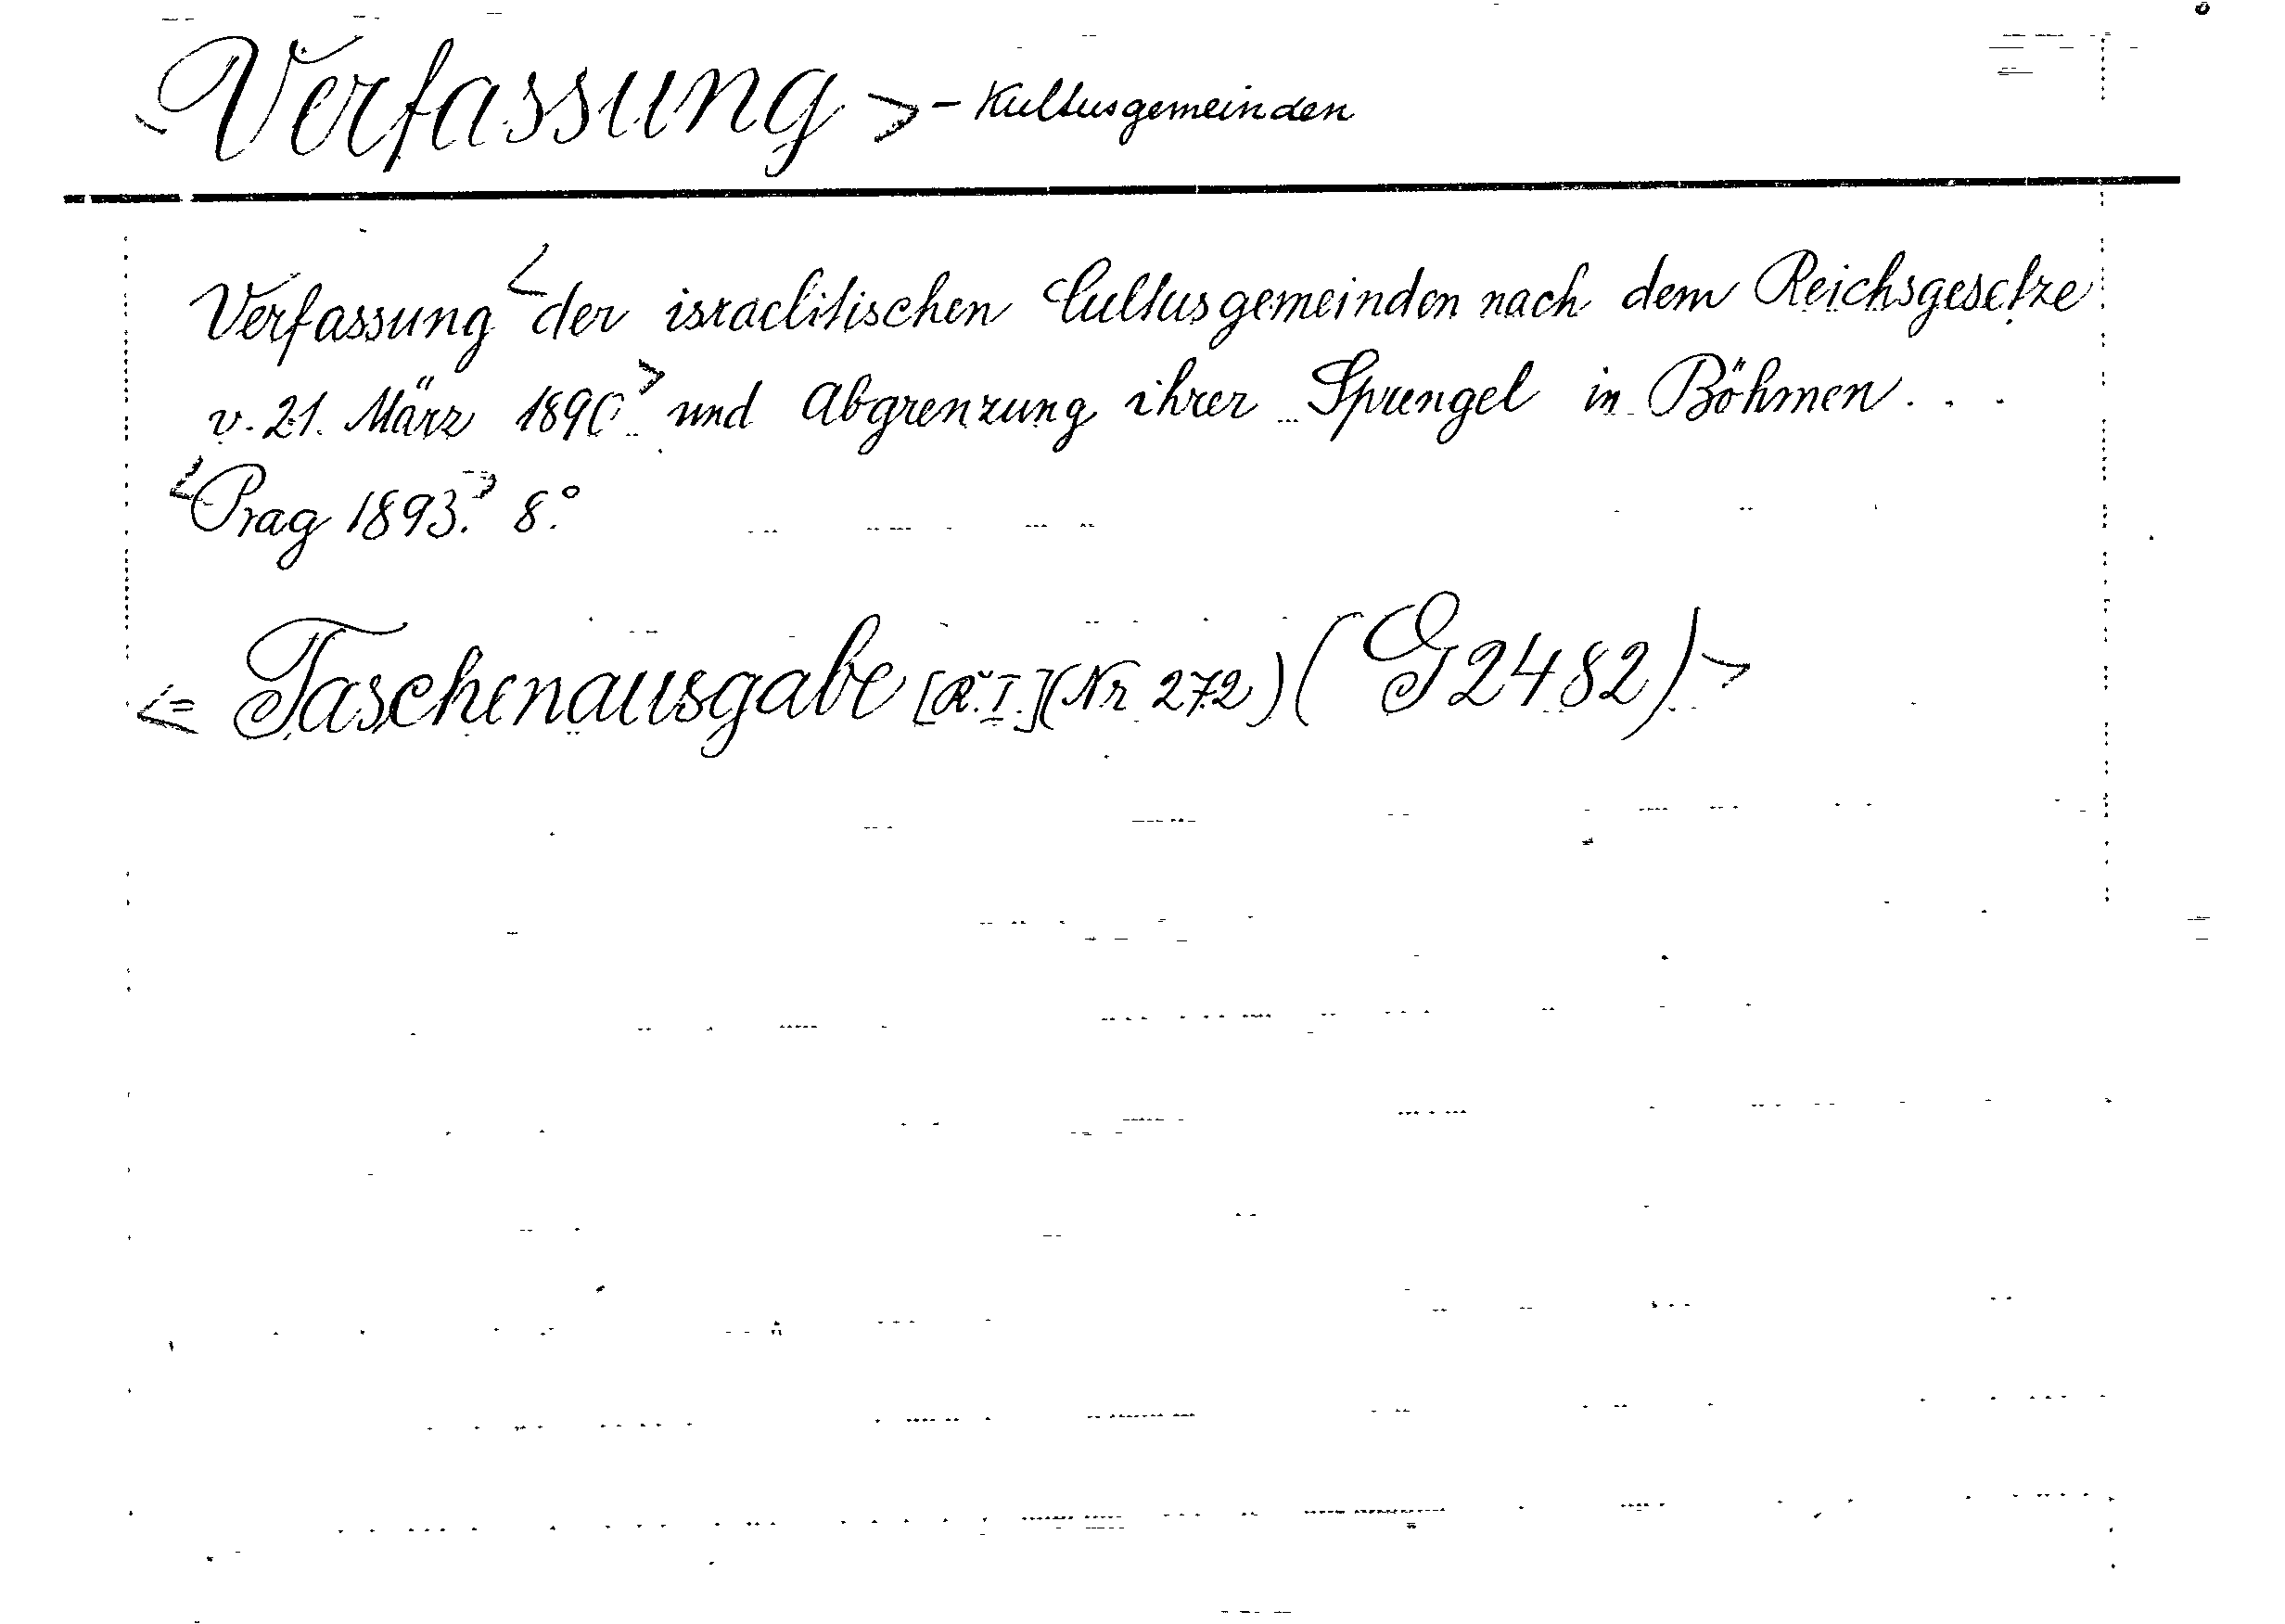 <Verfassung> - Kultusgemeinden
Verfassung <der israelitischen Cultusgemeinden nach dem Reichsgesetze
v. 21. März 1890> und Abgrenzung ihrer Sprengel in Böhmen...
<Prag 1893.> 8.°
<= Taschenausgabe [R. I.] (Nr 272) (G 2482)>